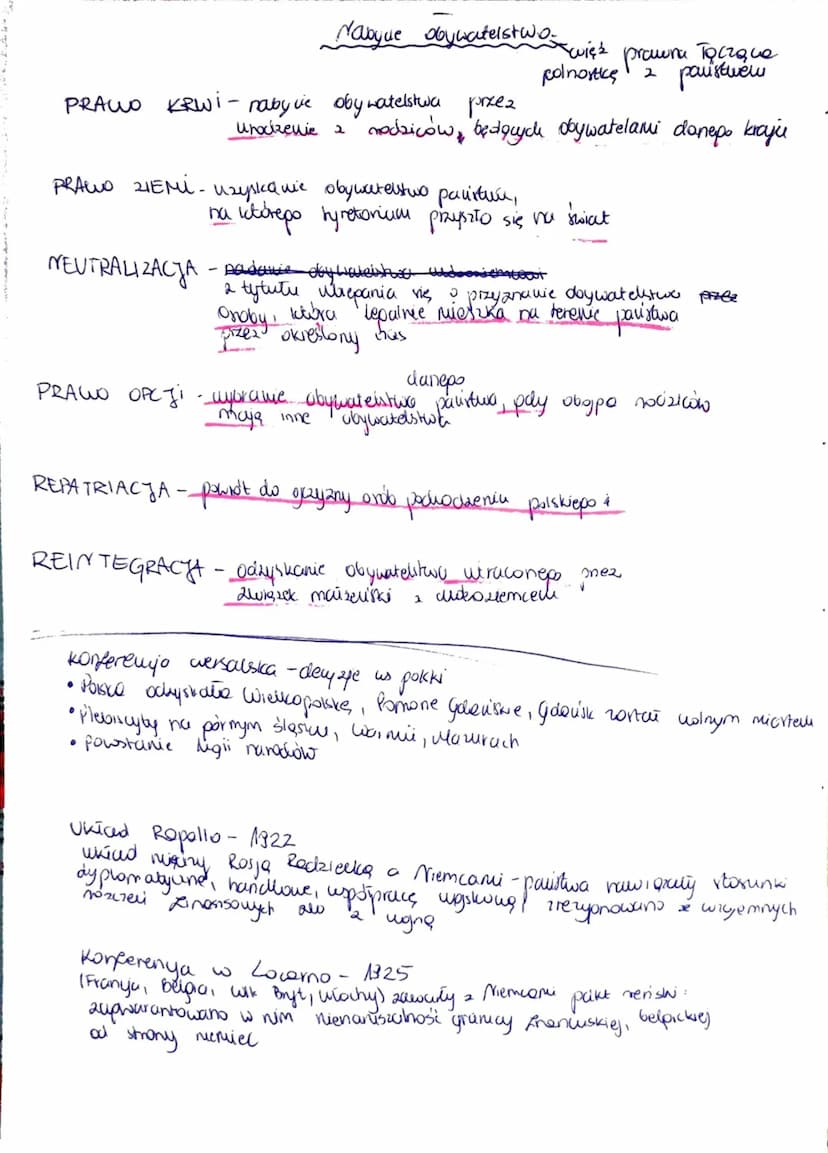 Nabycie obywatelstwa - więź prawna łącząca
jednostkę z państwem
PRAWO KRWI - nabycie obywatelstwa przez
urodzenie z rodziców, będących obywatelami danego kraju
PRAWO ZIEMI - uzyskanie obywatelstwa państwa,
na którego tyretorium przyszło się na świat
NEUTRALIZACJA - nadanie obywatelstwa
z tytułu ubiegania się o przyznanie obywatelstwa przez
osoby, która legalnie mieszka na terenie państwa
przez określony czas
danego
PRAWO OPCJI - wybranie obywatelstwa państwa, gdy oboje rodziców
mają inne obywatelstwa
REPATRIACJA - powrót do ojczyzny osób pochodzenia polskiego
REINTEGRACJA - odzyskanie obywatelstwa utraconego przez
związek małżeński z cudzoziemcem
Konferencja wersalska - decyzje ws polski
• Polska odzyskała Wielkopolskę, Pomorze Gdańskie, Gdańsk został wolnym miastem
• Plebiscyty na górnym śląsku, Warmii, Mazurach
• Powstanie Ligii narodów
Układ Rapallo - 1922
układ między Rosją Radziecką a Niemcami - państwa nawiązały stosunki
dyplomatyczne, handlowe, współpracę wojskową, zrezygnowano z wzajemnych
roszczeń finansowych z wojną
Konferencja w Locarno - 1925
(Francja, Belgia, Wlk Bryt, Włochy) zawarły z Niemcami pakt reński:
zagwarantowano w nim nienaruszalność granicy francuskiej, belgickiej
od strony niemiec